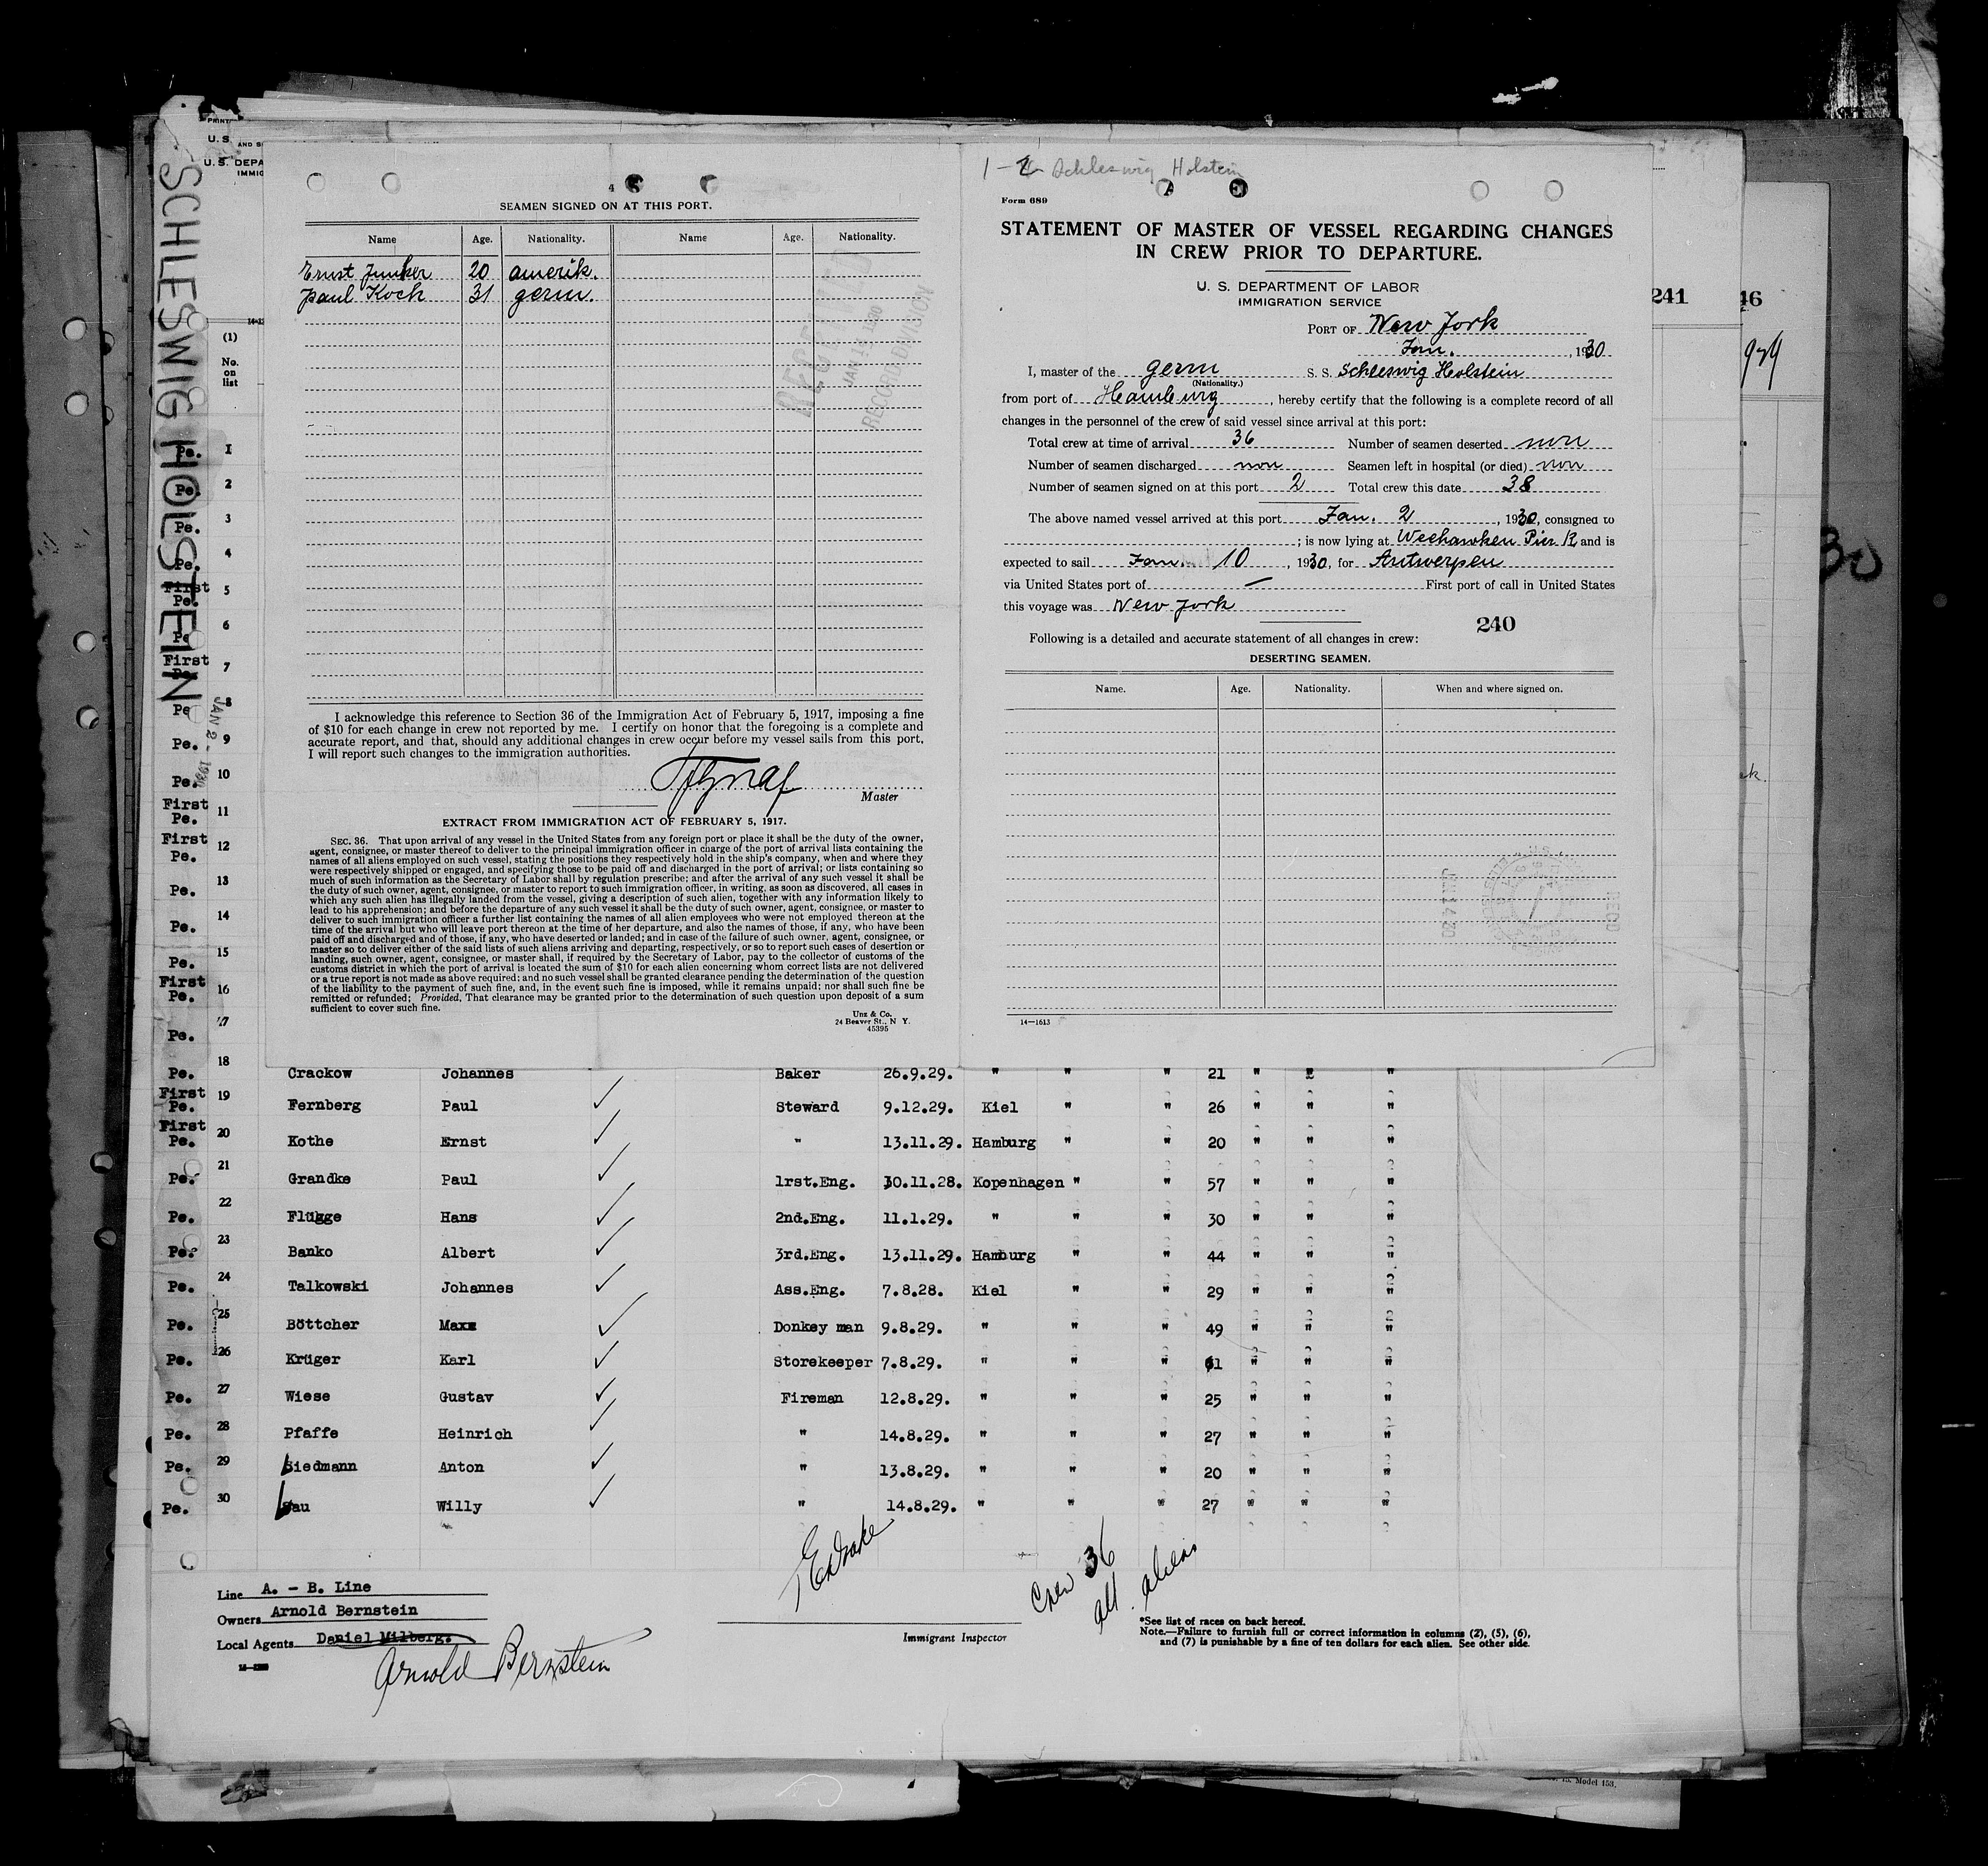 SCHLESWIG HOLSTEIN
PRINT
U. S.
AND S
U. S. DEPA
IMMIG
(1)
No.
on
list
4
SEAMEN SIGNED ON AT THIS PORT.
Name Age. Nationality. Name Age. Nationality.
Ernst Junker 20 amerik.
Paul Koch 31 germ.
RECEIVED
RECORD DIVISION
I acknowledge this reference to Section 36 of the Immigration Act of February 5, 1917, imposing a fine
of $10 for each change in crew not reported by me. I certify on honor that the foregoing is a complete and
accurate report, and that, should any additional changes in crew occur before my vessel sails from this port,
I will report such changes to the immigration authorities.
Master
EXTRACT FROM IMMIGRATION ACT OF FEBRUARY 5, 1917.
SEC. 36. That upon arrival of any vessel in the United States from any foreign port or place it shall be the duty of the owner,
agent, consignee, or master thereof to deliver to the principal immigration officer in charge of the port of arrival lists containing the
names of all aliens employed on such vessel, stating the positions they respectively hold in the ship's company, when and where they
were respectively shipped or engaged, and specifying those to be paid off and discharged in the port of arrival; or lists containing so
much of such information as the Secretary of Labor shall by regulation prescribe; and after the arrival of any such vessel it shall be
the duty of such owner, agent, consignee, or master to report to such immigration officer, in writing, as soon as discovered, all cases in
which any such alien has illegally landed from the vessel, giving a description of such alien, together with any information likely to
lead to his apprehension; and before the departure of any such vessel it shall be the duty of such owner, agent, consignee, or master to
deliver to such immigration officer a further list containing the names of all alien employees who were not employed thereon at the
time of the arrival but who will leave port thereon at the time of her departure, and also the names of those, if any, who have been
paid off and discharged and of those, if any, who have deserted or landed; and in case of the failure of such owner, agent, consignee, or
master so to deliver either of the said lists of such aliens arriving and departing, respectively, or so to report such cases of desertion or
landing, such owner, agent, consignee, or master shall, if required by the Secretary of Labor, pay to the collector of customs of the
customs district in which the port of arrival is located the sum of $10 for each alien concerning whom correct lists are not delivered
or a true report is not made as above required; and no such vessel shall be granted clearance pending the determination of the question
of the liability to the payment of such fine, and, in the event such fine is imposed, while it remains unpaid; nor shall such fine be
remitted or refunded; Provided, That clearance may be granted prior to the determination of such question upon deposit of a sum
sufficient to cover such fine.
Unz & Co.
24 Beaver St., N Y.
45395
Schleswig Holstein
Form 689
STATEMENT OF MASTER OF VESSEL REGARDING CHANGES
IN CREW PRIOR TO DEPARTURE.
U. S. DEPARTMENT OF LABOR
IMMIGRATION SERVICE
PORT OF New York
Jan. , 1930
I, master of the germ S. S. Schleswig Holstein
(Nationality.)
from port of Hamburg , hereby certify that the following is a complete record of all
changes in the personnel of the crew of said vessel since arrival at this port:
Total crew at time of arrival 36 Number of seamen deserted non
Number of seamen discharged non Seamen left in hospital (or died) non
Number of seamen signed on at this port 2 Total crew this date 38
The above named vessel arrived at this port Jan. 2 , 1930, consigned to
; is now lying at Weehawken Pier K and is
expected to sail Jan. 10 , 1930, for Antwerpen
via United States port of — First port of call in United States
this voyage was New York
240
Following is a detailed and accurate statement of all changes in crew:
DESERTING SEAMEN.
Name. Age. Nationality. When and where signed on.
14—1613
241
46
30
Pe. 1
Pe. 2
Pe. 3
Pe. 4
First Pe. 5
Pe. 6
First Pe. 7
Pe. 8
JAN 2 - 1930
Pe. 9
Pe. 10
First Pe. 11
First Pe. 12
Pe. 13
Pe. 14
Pe. 15
First Pe. 16
Pe. 17
Pe. 18 Crackow Johannes Baker 26.9.29. " " " 21 " " "
First Pe. 19 Fernberg Paul Steward 9.12.29. Kiel " " 26 " " "
First Pe. 20 Kothe Ernst " 13.11.29. Hamburg " " 20 " " "
Pe. 21 Grandke Paul 1rst.Eng. 30.11.28. Kopenhagen " " 57 " " "
Pe. 22 Flügge Hans 2nd.Eng. 11.1.29. " " " 30 " " "
Pe. 23 Banko Albert 3rd.Eng. 13.11.29. Hamburg " " 44 " " "
Pe. 24 Talkowski Johannes Ass.Eng. 7.8.28. Kiel " " 29 " " "
Pe. 25 Böttcher Max Donkey man 9.8.29. " " " 49 " " "
Pe. 26 Krüger Karl Storekeeper 7.8.29. " " " 61 " " "
Pe. 27 Wiese Gustav Fireman 12.8.29. " " " 25 " " "
Pe. 28 Pfaffe Heinrich " 14.8.29. " " " 27 " " "
Pe. 29 Siedmann Anton " 13.8.29. " " " 20 " " "
Pe. 30 Sau Willy " 14.8.29. " " " 27 " " "
Crew 36
all aliens
Line A. - B. Line
Owners Arnold Bernstein
Local Agents Daniel Milberg.
Arnold Bernstein
Immigrant Inspector
*See list of races on back hereof.
Note.—Failure to furnish full or correct information in columns (2), (5), (6),
and (7) is punishable by a fine of ten dollars for each alien. See other side.
Model 153.